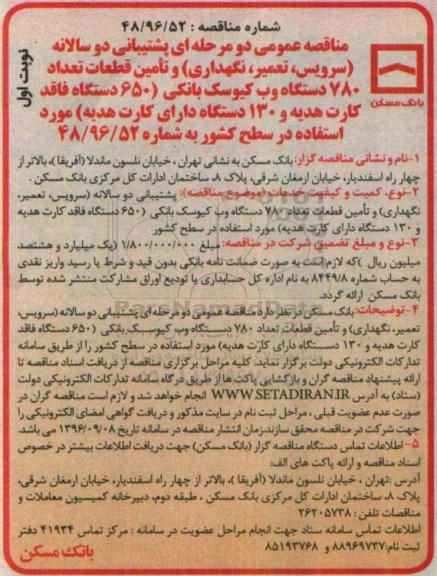 شماره مناقصه : ۴۸/۹۶/۵۲
نوبت اول
مناقصه عمومی دو مرحله ای پشتیبانی دو سالانه
(سرویس، تعمیر، نگهداری) و تأمین قطعات تعداد
۷۸۰ دستگاه وب کیوسک بانکی (۶۵۰ دستگاه فاقد
کارت هدیه و ۱۳۰ دستگاه دارای کارت هدیه) مورد
استفاده در سطح کشور به شماره ۴۸/۹۶/۵۲
بانک مسکن
۱-نام و نشانی مناقصه گزار: بانک مسکن به نشانی تهران ، خیابان نلسون ماندلا (آفریقا)، بالاتر از
چهار راه اسفندیار، خیابان ارمغان شرقی، پلاک ۸، ساختمان ادارات کل مرکزی بانک مسکن .
۲-نوع، کمیت و کیفیت خدمات (موضوع مناقصه): پشتیبانی دو سالانه (سرویس، تعمیر،
نگهداری) و تأمین قطعات تعداد ۷۸۰ دستگاه وب کیوسک بانکی (۶۵۰ دستگاه فاقد کارت هدیه
و ۱۳۰ دستگاه دارای کارت هدیه) مورد استفاده در سطح کشور
۳-نوع و مبلغ تضمین شرکت در مناقصه: مبلغ ۱/۸۰۰/۰۰۰/۰۰۰ (یک میلیارد و هشتصد
میلیون ریال )که لازم است به صورت ضمانت نامه بانکی بدون قید و شرط یا رسید واریز نقدی
به حساب شماره ۸۴۴۹/۸ به نام اداره کل حسابداری یا تودیع اوراق مشارکت منتشر شده توسط
بانک مسکن ارائه گردد.
۴-توضیحات: بانک مسکن در نظر دارد مناقصه عمومی دو مرحله ای پشتیبانی دو سالانه (سرویس،
تعمیر، نگهداری) و تأمین قطعات تعداد ۷۸۰ دستگاه وب کیوسک بانکی (۶۵۰ دستگاه فاقد
کارت هدیه و ۱۳۰ دستگاه دارای کارت هدیه) مورد استفاده در سطح کشور را از طریق سامانه
تدارکات الکترونیکی دولت برگزار نماید. کلیه مراحل برگزاری مناقصه از دریافت اسناد مناقصه تا
ارائه پیشنهاد مناقصه گران و بازگشایی پاکت ها از طریق درگاه سامانه تدارکات الکترونیکی دولت
(ستاد) به آدرس WWW.SETADIRAN.IR انجام خواهد شد و لازم است مناقصه گران در
صورت عدم عضویت قبلی ، مراحل ثبت نام در سایت مذکور و دریافت گواهی امضای الکترونیکی را
جهت شرکت در مناقصه محقق سازند.زمان انتشار مناقصه در سامانه تاریخ ۱۳۹۶/۰۹/۰۸ می باشد.
۵-اطلاعات تماس دستگاه مناقصه گزار (بانک مسکن) جهت دریافت اطلاعات بیشتر در خصوص
اسناد مناقصه و ارائه پاکت های الف:
آدرس :تهران ، خیابان نلسون ماندلا (آفریقا )، بالاتر از چهار راه اسفندیار، خیابان ارمغان شرقی،
پلاک ۸، ساختمان ادارات کل مرکزی بانک مسکن ، طبقه دوم، دبیرخانه کمیسیون معاملات و
مناقصات تلفن : ۲۶۲۰۵۷۳۸
اطلاعات تماس سامانه ستاد جهت انجام مراحل عضویت در سامانه : مرکز تماس ۴۱۹۳۴ دفتر
ثبت نام:۸۸۹۶۹۷۳۷ و ۸۵۱۹۳۷۶۸
بانک مسکن